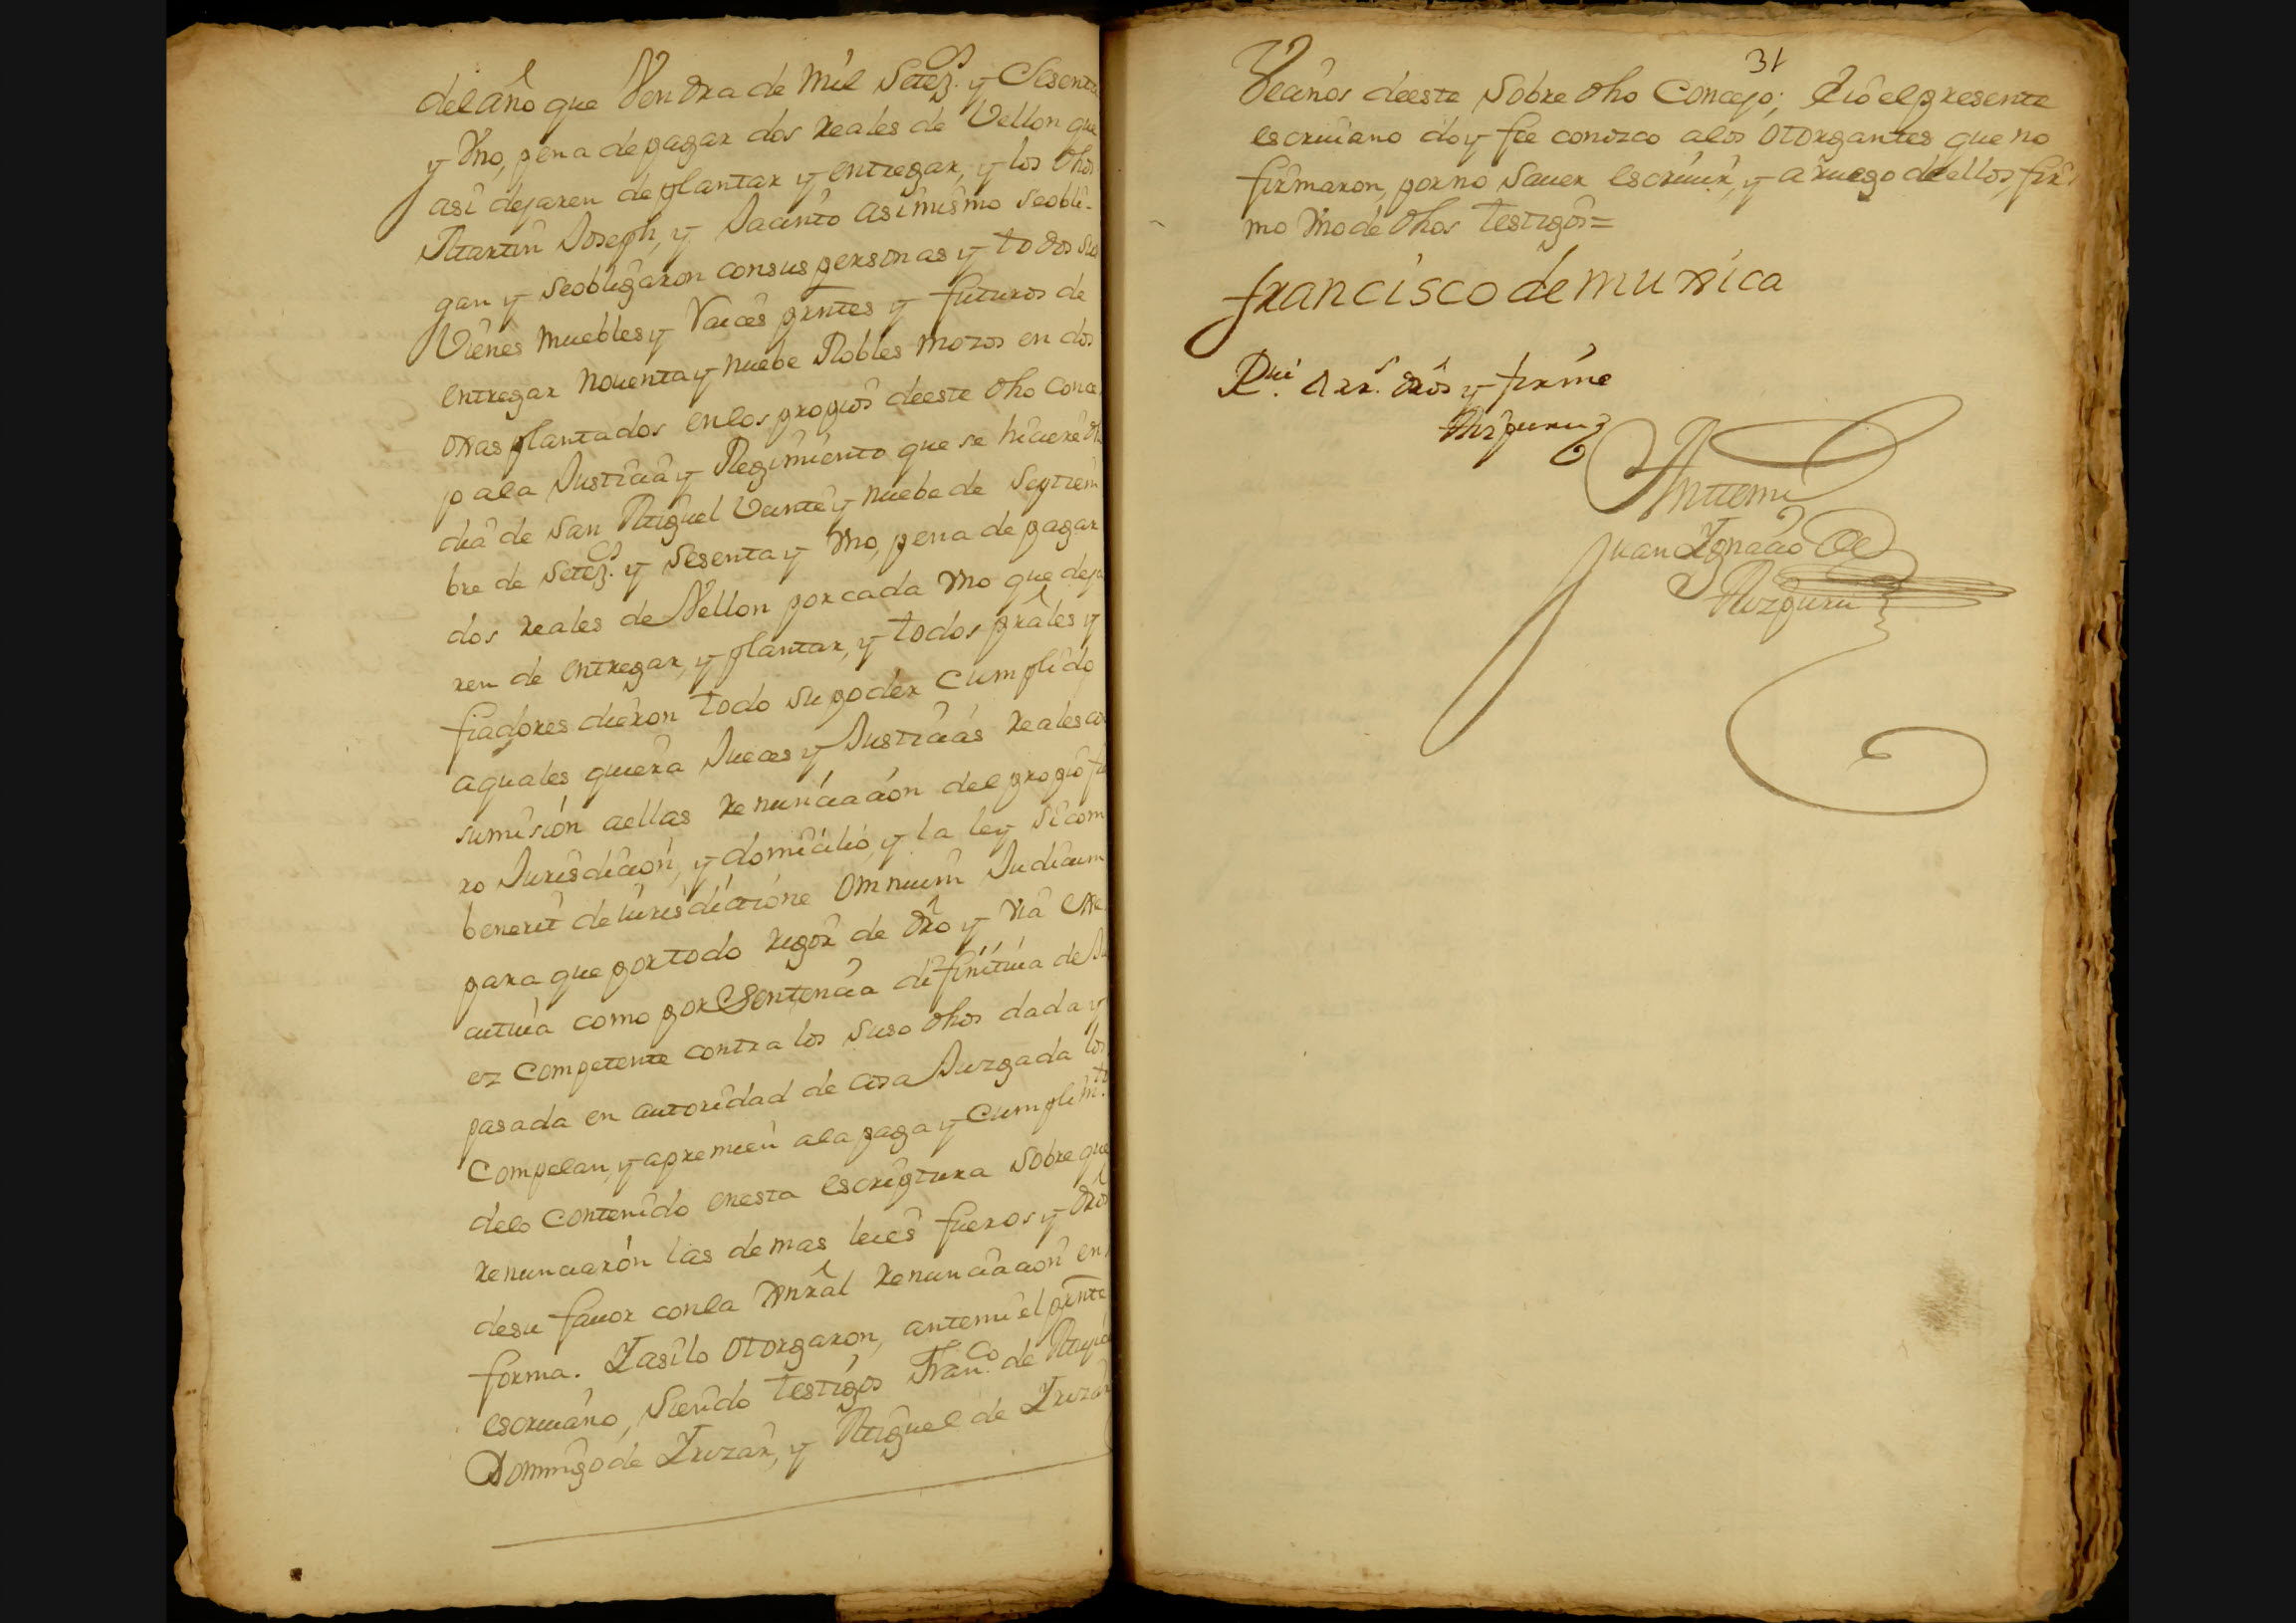 del año que Vendra de mil Setez.os y Sesenta
y Vno, pena de pagar dos reales de Vellon que
asi dejaren de plantar y entregar, y los dhos
Martin Joseph, y Jacinto asimismo seobli-
gan y seobligaron consus personas y todos sus
Vienes muebles y Raices prntes y futuros de
entregar nouenta y nuebe Robles mozos en dos
ojas plantados enlos propios deeste dho conce
jo ala Justicia y Regimiento que se hiciere el
dia de San Miguel Veinte y nuebe de Septiem
bre de Setez.os y Sesenta y Vno, pena de pagar
dos reales de Vellon por cada Vno que deja
ren de entregar, y plantar, y todos prales y
fiadores dieron todo su poder cumplido
aquales quiera Jueces y Justicias reales con
sumision aellas renunciacion del propio fue
ro Jurisdicion, y domicilio, y la ley si com
benerit deiurisdictione omnium Judicum
para que por todo rigor de dro y via exe
cutiua como por Sentencia difinitiua de Ju
ez competente contra los suso dhos dada y
pasada en autoridad de cosa Juzgada los
compelan, y apremien ala paga y cumplim.to
delo contenido enesta escriptura sobre que
renunciaron las demas leies fueros y dros
desu fauor conla gnral renunciacion en
forma. Yasilo otorgaron, antemi el prnte
escriuano, siendo testigos Fran.co de
Domingo de Yruzar, y Miguel de Yruzar
31
Vecinos deeste sobre dho Concejo; Eio elpresente
escriuano doy fee conozco alos otorgantes que no
firmaron, porno sauer escriuir, y a ruego deellos, fir-
mo Vno de dhos testigos=
francisco de muxica
R.ui Arr.s dros y firme
Anttemi
Juan Ygnacio de